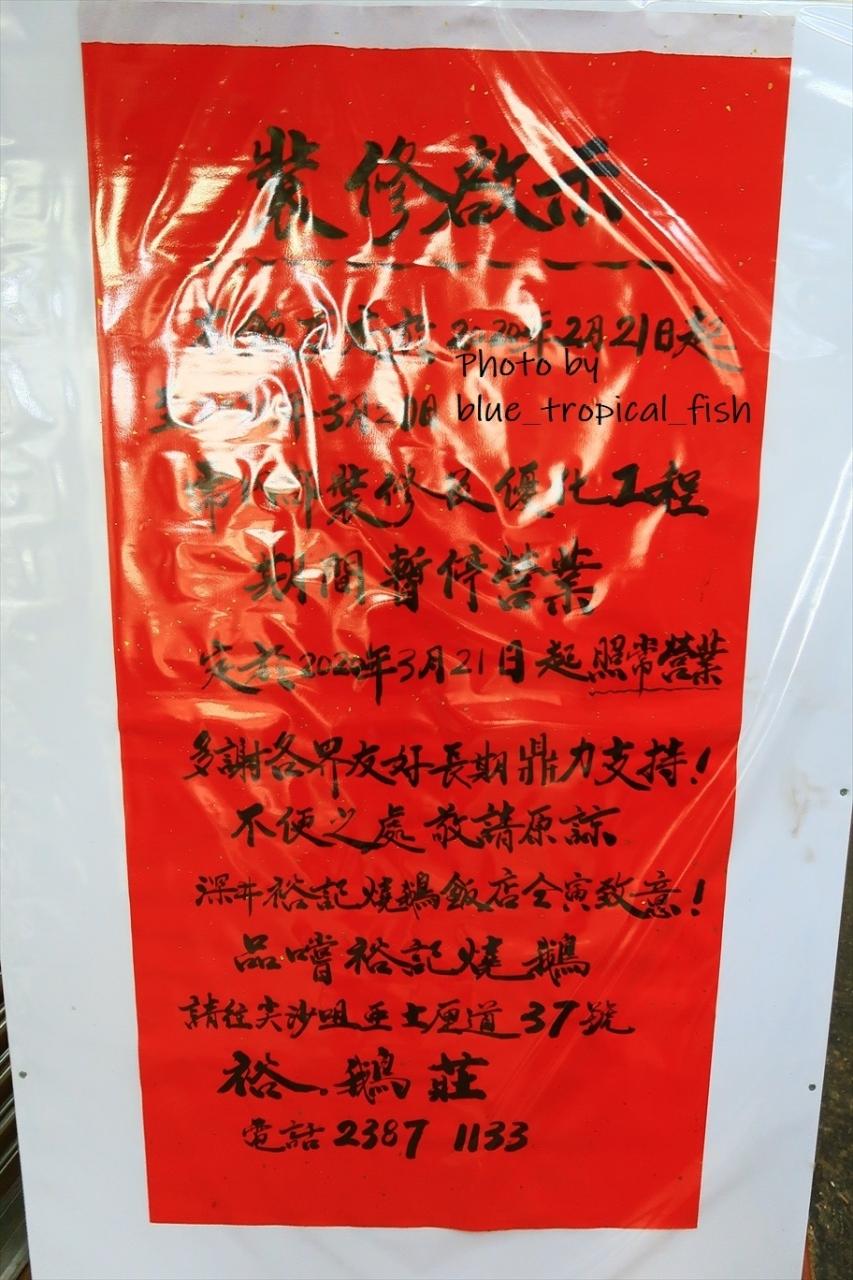 裝修啟示
飯店定於2020年2月21日起
至 年3月21日
常 部裝修及優化工程
期間暫停營業
定於2020年3月21日起照常營業
多謝各界友好長期鼎力支持！
不便之處敬請原諒
深井裕記燒鵝飯店仝寅致意！
品嚐裕記燒鵝
請往尖沙咀亞士厘道37號
裕．鵝莊
電話2387 1133
Photo by
blue_tropical_fish